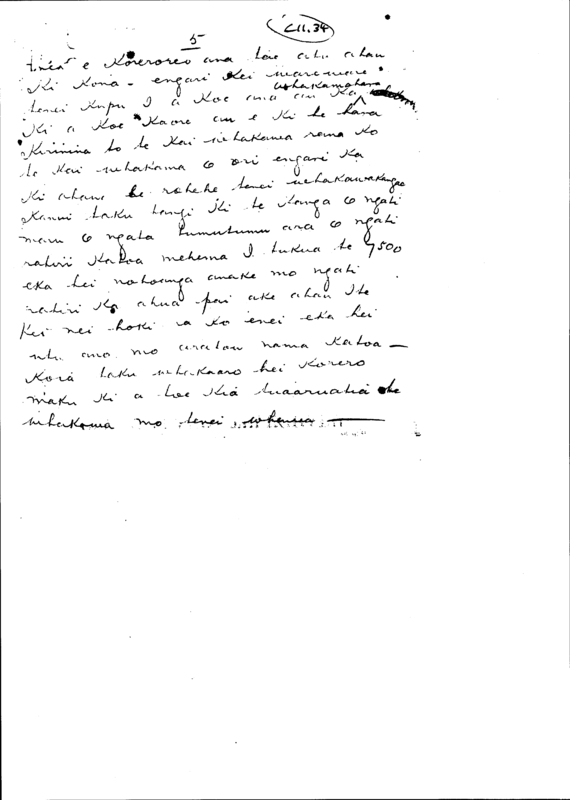 C11.34
5
e Korerorero ana koe ahau
Ki Kona - engari Kei warewareᵃ
whakamahara
tenei Kupu I a Koe ana au Ka
Ki a Koe Kaore au e Ki te hara
Kirimina to te Kai whakawa rama Ko
te Kai whakawa o ori engari Ka
Ki ahau te rohehe tenei whakawakanga
Kanui taku tangi Ki te tonga o ngati
maru o ngata tumutumu ara o ngati
rahiri Katoa mehema I tukua te 7500
eka hei nohoanga anake mo ngati
rahiri Ka ahua pai ake ahau I te
Kei nei hoki a Ko enei eka hei
utu ano mo aratou nama Katoa —
Kora taku whakaaro hei Korero
maku Ki a koe Kia tuaaruatia te
whakawa mo tenei whenua —